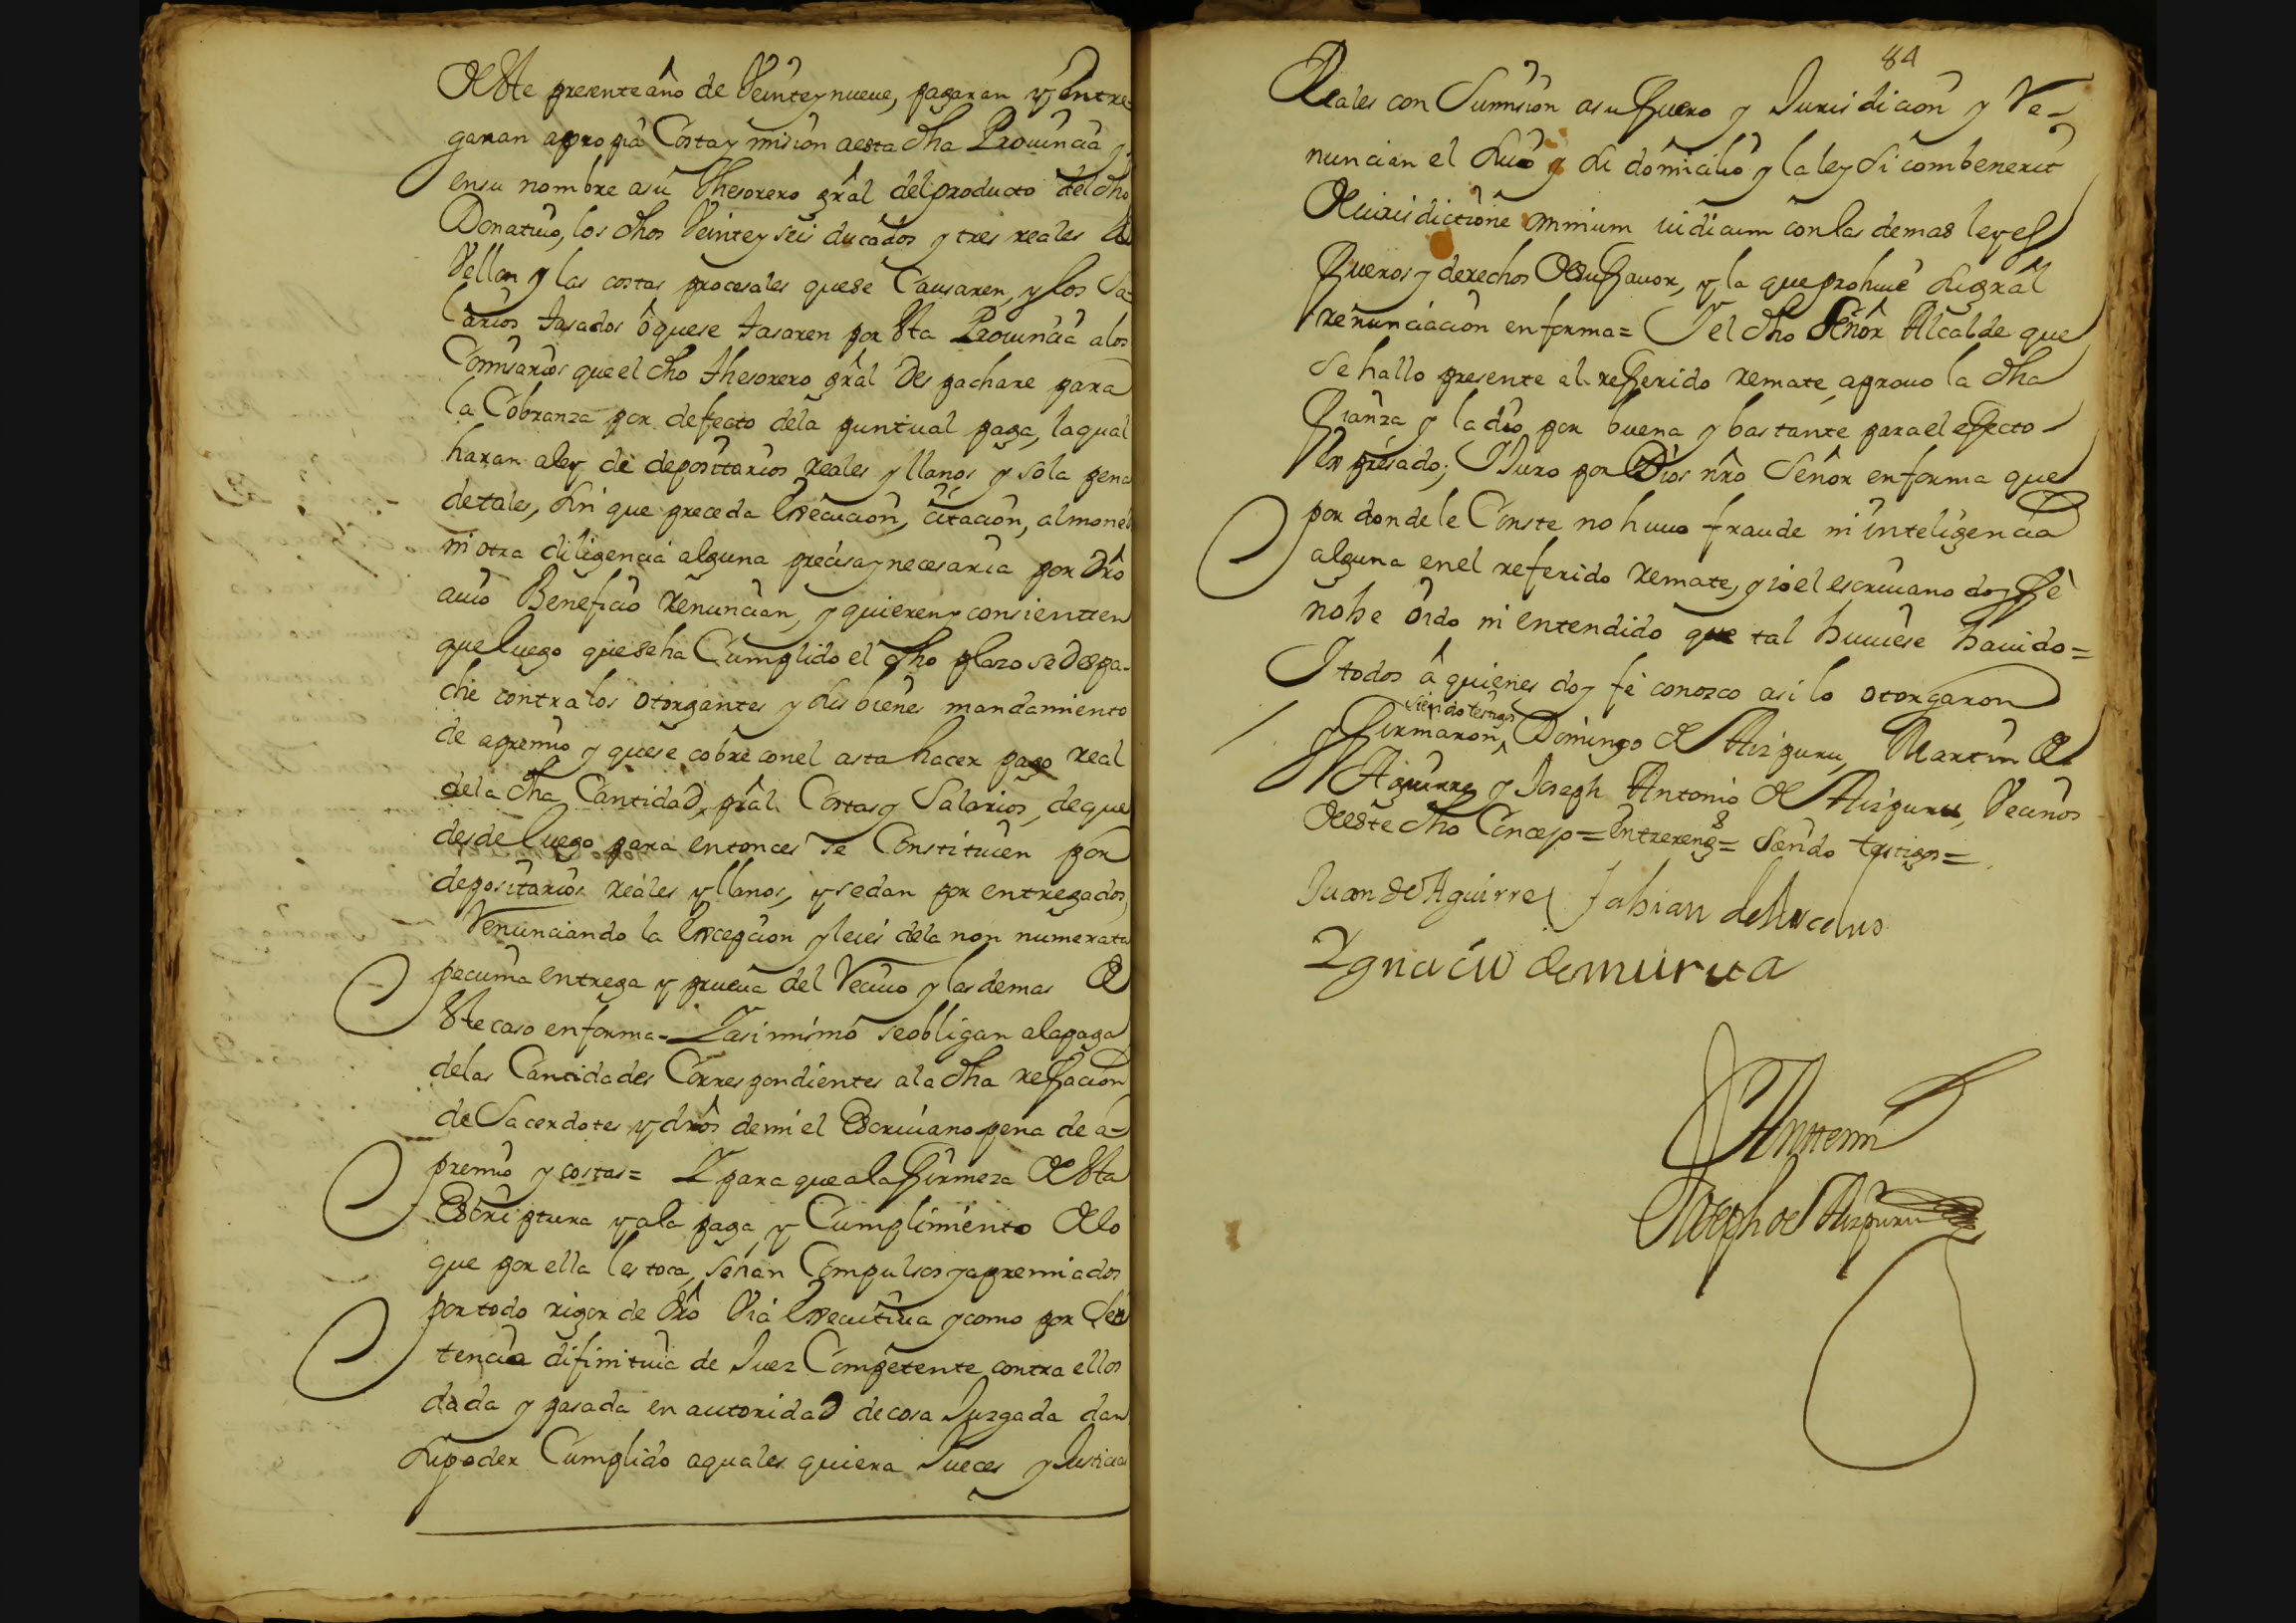 De Este presente año de Veinte y nueue, pagaran y entre-
garan apropia Costa y mision a esta dha Prouincia y
en su nombre a su Thesorero gral del producto del dho
Donatiuo, los dhos Veinte y seis ducados y tres reales de
Vellon y las costas procesales que se Causaren, y los Sa-
larios tasados ô que se tasaren por Esta Prouincia a los
Comisarios que el dho thesorero gral Despachare para
la Cobranza por defecto dela puntual paga, la qual
haran a ley de depositarios reales y llanos y so la pena
de tales, sin que preceda Execucion, citacion, almoned
ni otra diligencia alguna precisa y necesaria por dro
a cuio Beneficio renuncian, y quieren y consienten
que luego que se ha Cumplido el dho plazo se Despa-
che contra los otorgantes y sus bienes mandamiento
de apremio y que se cobre con el asta hacer pago real
de la dha Cantidad, pral Costas y Salarios, de que
desde luego para entonces se Constituien por
depositarios reales y llanos, y se dan por entregados,
Renunciando la Excepcion y leies dela non numerata
pecunia entrega y prueua del Reciuo y las demas De
Este caso en forma= Y asi mismo se obligan a la paga
de las Cantidades Correspondientes a la dha refaccion
de Sacerdotes y drôs de mi el Escriuano pena de a-
premio y costas= Y para que a la firmeza De Esta
Escriptura y a la paga y Cumplimiento De lo
que por ella les toca, serian Compulsos y apremiados
por todo rigor de drô Via Executiua y como por Sen
tencia difinitiua de Juez Competente contra ellos
dada y pasada en autoridad de cosa Juzgada dan
su poder Cumplido a quales quiera Jueces y Justicias
84
Reales con Sumision a su fuero y Jurisdicion y Re-
nuncian el suio y su domicilio y la ley Si combenerit
De iurisdictione omnium iudicum con las demas leyes
fueros y derechos De su fauor, y la que prohiue su gral
renunciacion en forma= Y el dho Señor Alcalde que
se hallo presente al referido remate, aprouo la dha
fianza y la dio por buena y bastante para el efecto
Expresado; Y Juro por Dios nro Señor en forma que
por donde le Conste no huuo fraude ni inteligencia
alguna en el referido remate, y io el escriuano doy fe
no he oido ni entendido que tal huuiese hauido=
Y todos â quienes doy fe conozco asi lo otorgaron
siendo testigos
y firmaron, Domingo de Aizpuru, Martin de
Aguirre y Joseph Antonio de Aizpuru, Vecinos
De este dho Concejo= Entrereng.s= Siendo testigos=
Juan de Aguirre Fabian de Ascelus
Ygnacio de murua
Antemi
Joseph de Aizpuru